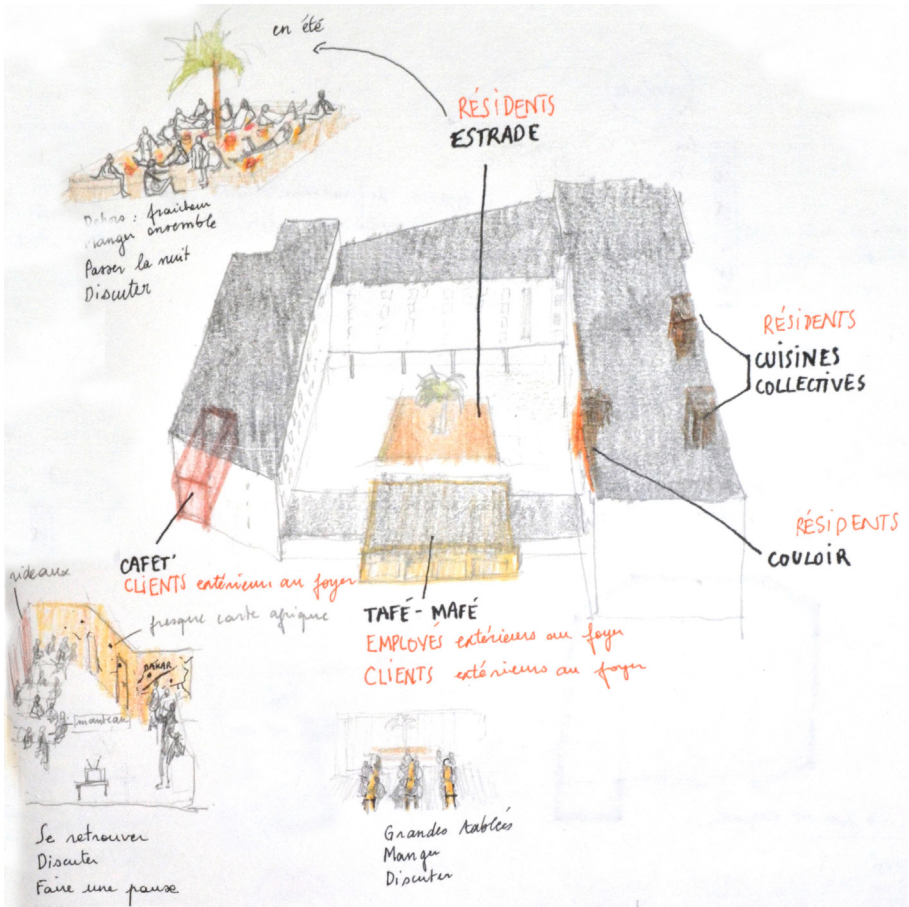 en été
RÉSIDENTS
ESTRADE
Dehors : fraicheur
Manger ensemble
Passer la nuit
Discuter
RÉSIDENTS
CUISINES
COLLECTIVES
RÉSIDENTS
COULOIR
CAFET'
CLIENTS extérieurs au foyer
rideaux
fresque carte afrique
DAKAR
manteau
TAFÉ - MAFÉ
EMPLOYÉS extérieurs au foyer
CLIENTS extérieurs au foyer
Se retrouver
Discuter
Faire une pause
Grandes tablées
Manger
Discuter